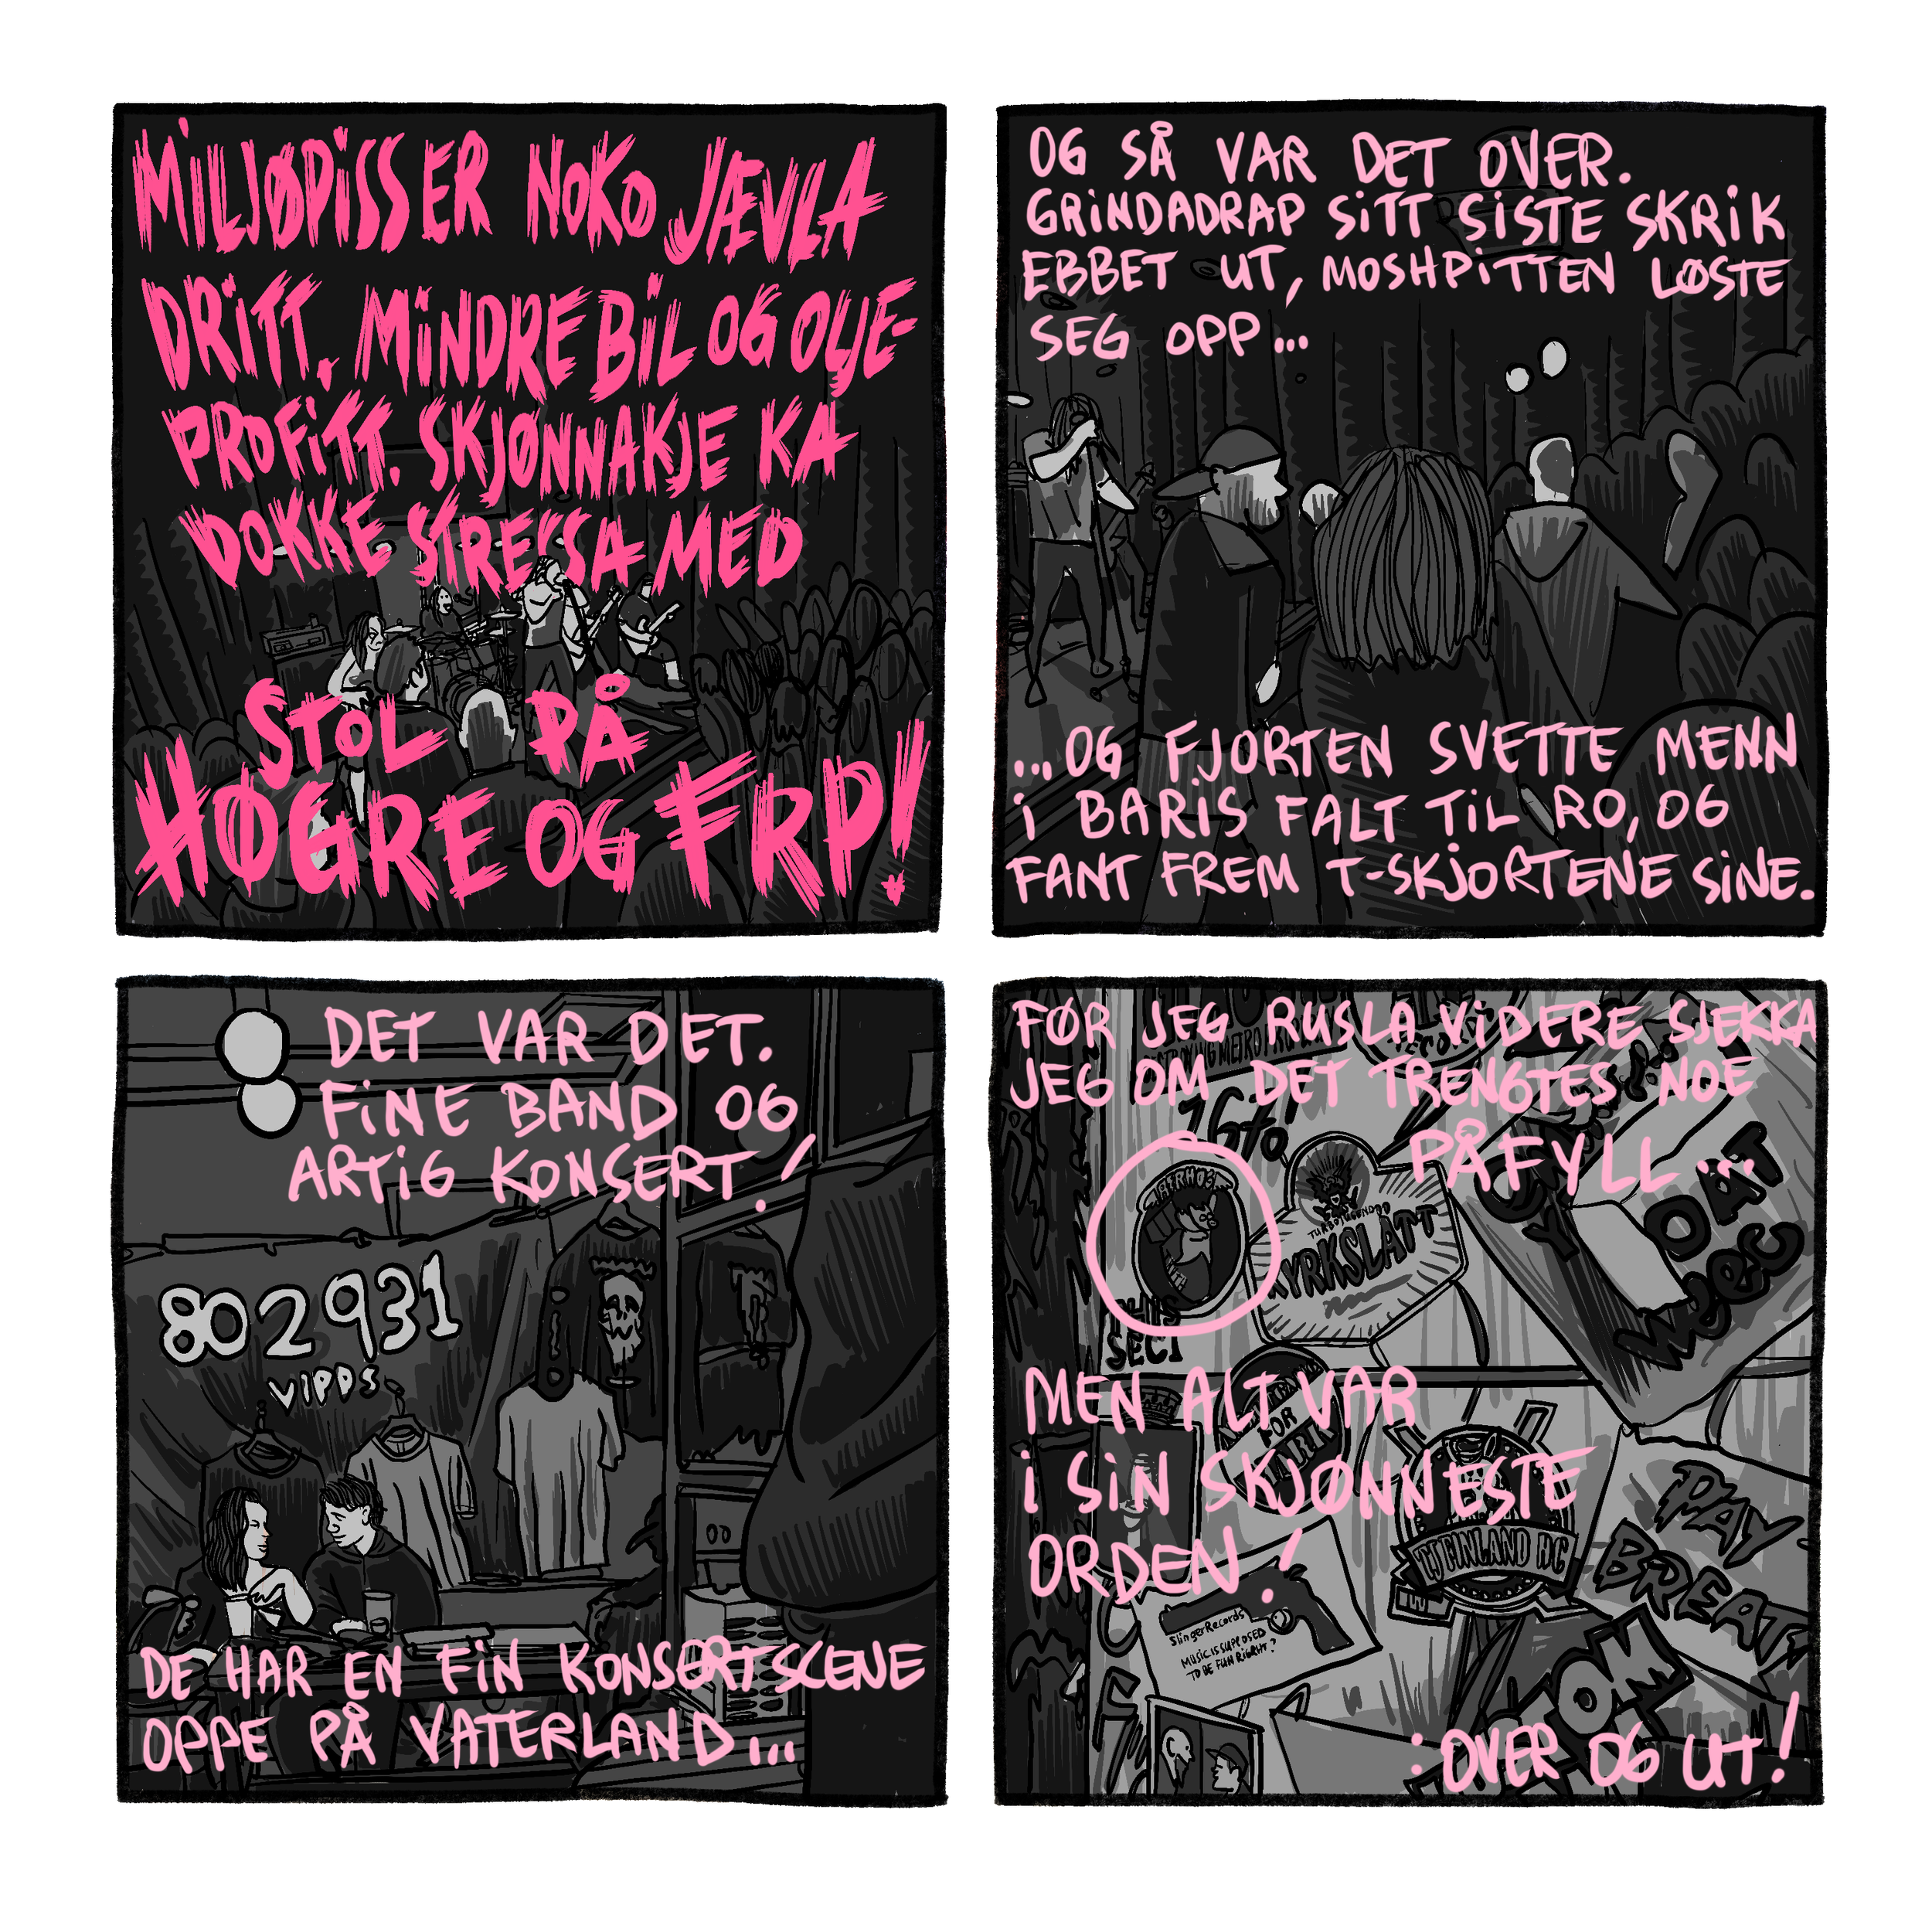 MILJØPISS ER NOKO JÆVLA
DRITT. MINDRE BIL OG OLJE-
PROFITT. SKJØNNAKJE KA
DOKKE STRESSA MED
STOL PÅ
HØGRE OG FRP!
OG SÅ VAR DET OVER.
GRINDADRAP SITT SISTE SKRIK
EBBET UT, MOSHPITTEN LØSTE
SEG OPP...
...OG FJORTEN SVETTE MENN
I BARIS FALT TIL RO, OG
FANT FREM T-SKJORTENE SINE.
DET VAR DET.
FINE BAND OG
ARTIG KONSERT!
802931
VIPPS
DE HAR EN FIN KONSERTSCENE
OPPE PÅ VATERLAND...
FØR JEG RUSLA VIDERE SJEKKA
JEG OM DET TRENGTES NOE
PÅFYLL...
16to
TURBOJUGEND
KYRKSLATT
MEN ALT VAR
I SIN SKJØNNESTE
ORDEN!
FOR
TJ FINLAND HC
PAY
BREAT
SlingerRecords
MUSIC IS SUPPOSED
TO BE FUN RIGHT?
: OVER OG UT!